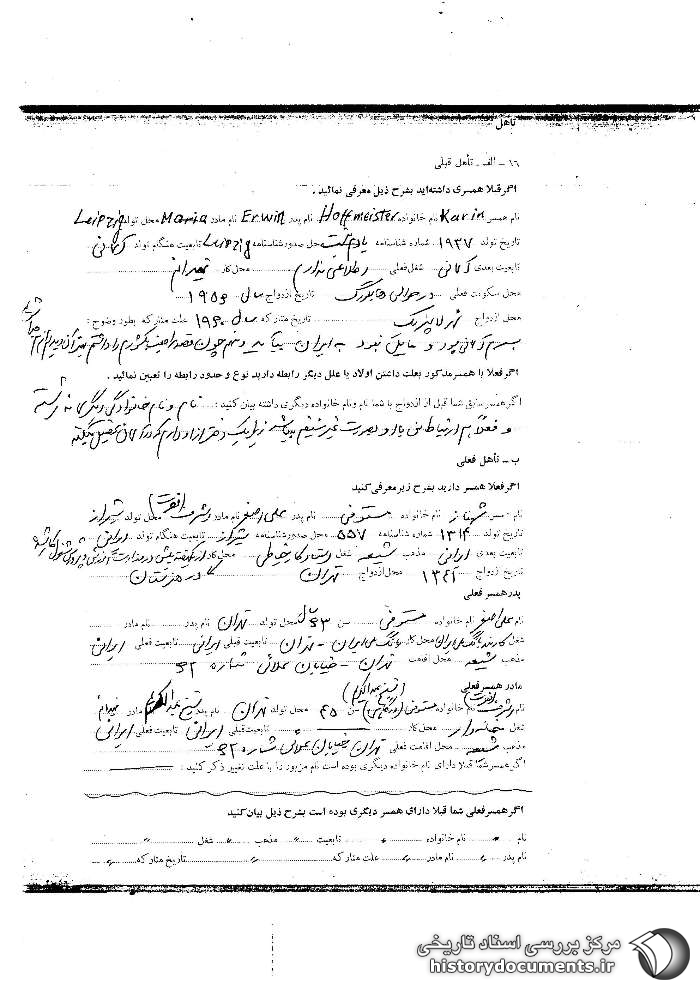 تأهل
۱۶ - الف - تأهل قبلی
اگر قبلا همسری داشته‌اید بشرح ذیل معرفی نمائید .
نام همسر Karin نام خانواده Hoffmeister نام پدر Erwin نام مادر Maria محل تولد Leipzig
تاریخ تولد ۱۹۳۷ شماره شناسنامه یادم نیست محل صدور شناسنامه Leipzig تابعیت هنگام تولد آلمانی
تابعیت بعدی آلمانی شغل فعلی اطلاعی ندارم محل کار تهران
محل سکونت فعلی در حوالی هامبورگ تاریخ ازدواج سال ۱۹۵۹
محل ازدواج شهر لایپزیک تاریخ متارکه سال ۱۹۶۰ علت متارکه بطور وضوح :
همسرم آلمانی بود و مایل نبود به ایران بیاید و منهم چون قصد
اگر فعلا با همسر مذکور بعلت داشتن اولاد یا علل دیگر رابطه دارید نوع و حدود رابطه را تعیین نمائید .
اگر همسر سابق شما قبل از ازدواج با شما نام و نام خانواده دیگری داشته بیان کنید : نام و نام خانوادگی دیگری نداشته
و فعلا هم ارتباط من با او بصورت غیر مستقیم میباشد زیرا یک دختر از او دارم که در آلمان تحصیل میکند
ب - تأهل فعلی
اگر فعلا همسر دارید بشرح زیر معرفی کنید
نام همسر شهناز نام خانواده مستوفی نام پدر علی اصغر نام مادر اشرف محل تولد شیراز
تاریخ تولد ۱۳۱۴ شماره شناسنامه ۵۵۷ محل صدور شناسنامه شیراز تابعیت هنگام تولد ایرانی
تابعیت بعدی ایرانی مذهب شیعه شغل محل کار
تاریخ ازدواج ۱۳۴۲ محل ازدواج تهران
پدر همسر فعلی
نام علی اصغر نام خانواده مستوفی سن ۶۳ سال محل تولد تهران نام پدر نام مادر
شغل کارمند بانک ملی ایران محل کار بانک ملی ایران - تهران تابعیت قبلی ایرانی تابعیت فعلی ایرانی
مذهب شیعه محل اقامت تهران - خیابان شماره ۶۲
مادر همسر فعلی
نام اشرف نام خانواده مستوفی سن ۴۵ محل تولد تهران نام پدر شیخ عبدالکریم نام مادر
شغل خانه‌دار محل کار تابعیت قبلی ایرانی تابعیت فعلی ایرانی
مذهب شیعه محل اقامت فعلی تهران خیابان شماره ۶۲
اگر همسر شما قبلا دارای نام خانواده دیگری بوده است نام مزبور را با علت تغییر ذکر کنید :
اگر همسر فعلی شما قبلا دارای همسر دیگری بوده است بشرح ذیل بیان کنید
نام نام خانواده تابعیت مذهب شغل
نام پدر نام مادر علت متارکه تاریخ متارکه
مرکز بررسی اسناد تاریخی
historydocuments.ir